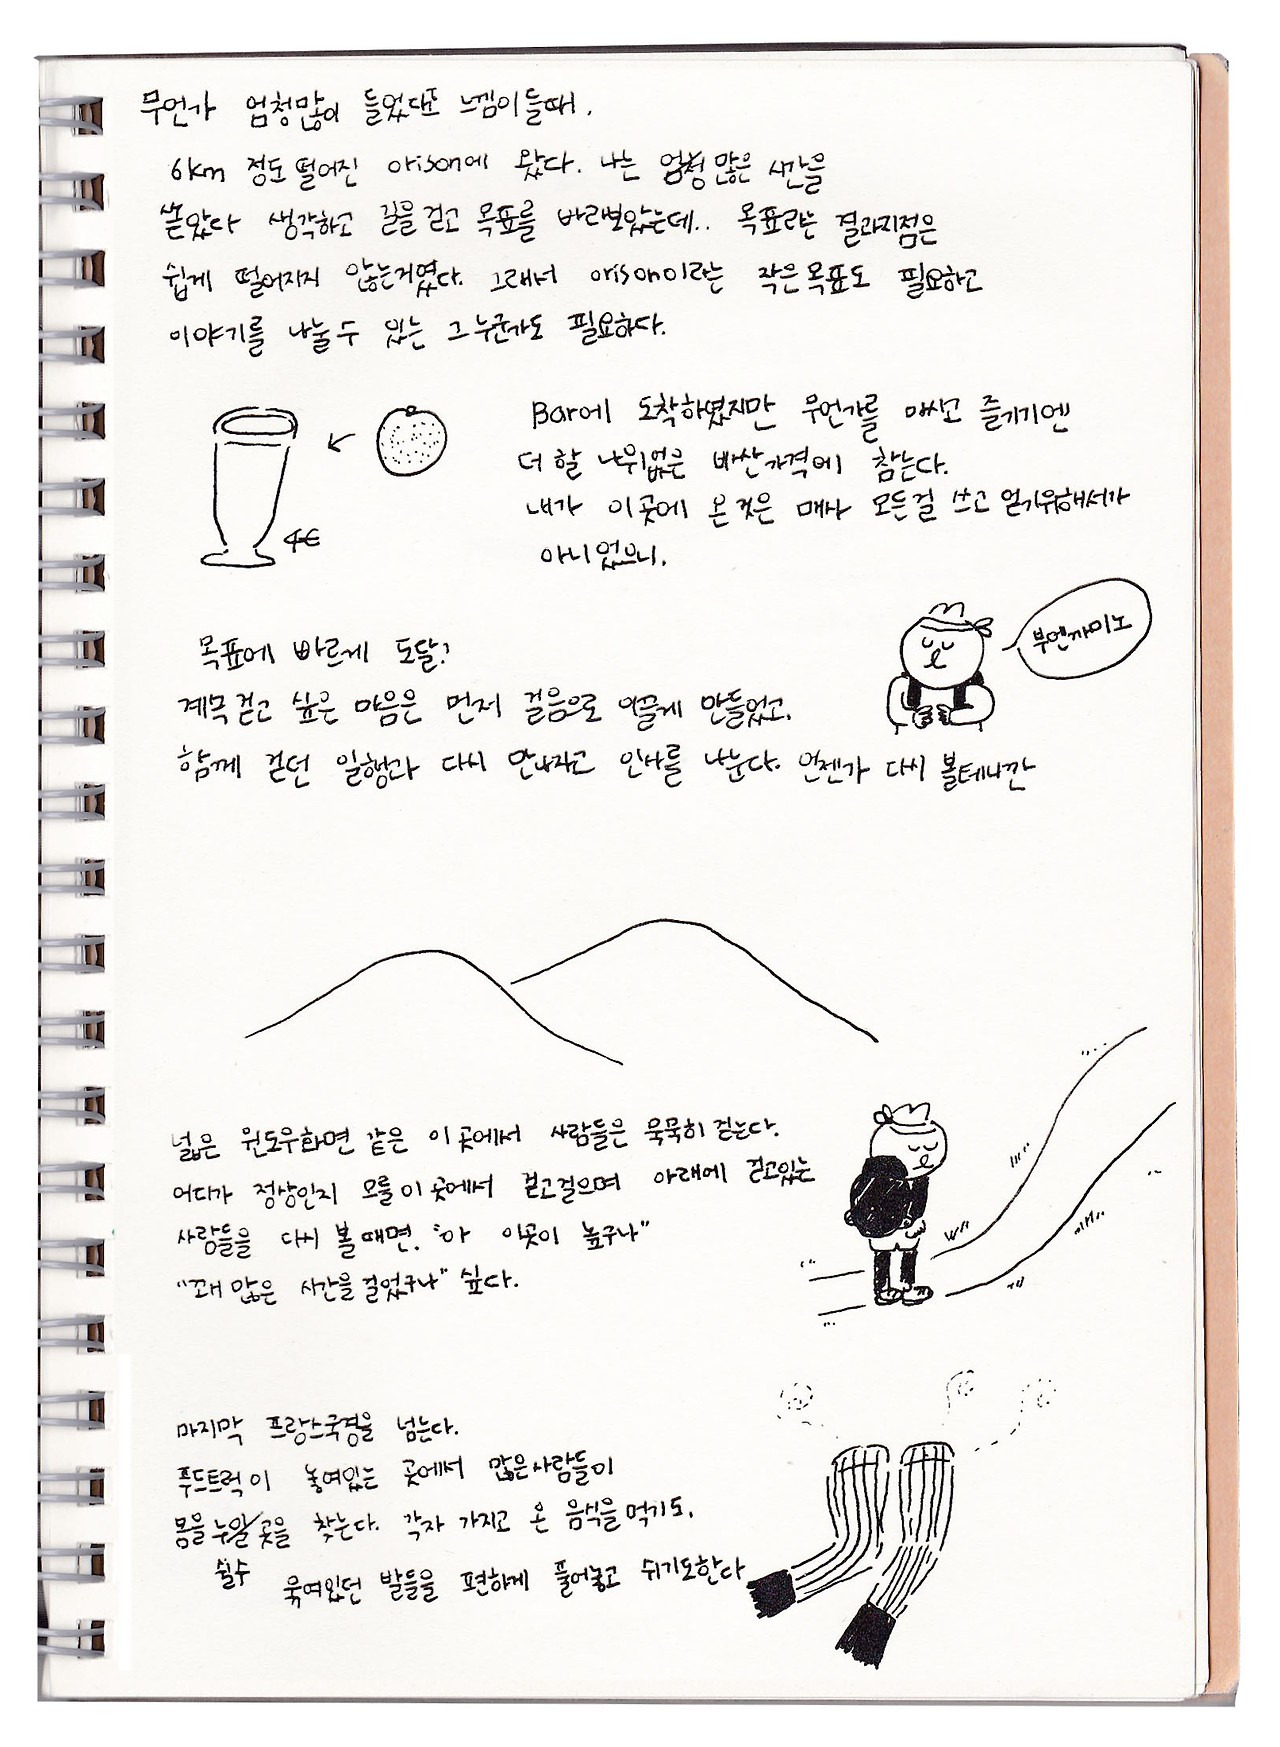 무언가 엄청많이 들었다는 느낌이들때.
6km 정도 떨어진 orison에 왔다. 나는 엄청 많은 시간을
쏟았다 생각하고 길을 걷고 목표를 바라보았는데.. 목표라는 결과지점은
쉽게 떨어지지 않는거였다. 그래서 orison이라는 작은목표도 필요하고
이야기를 나눌수 있는 그누군가도 필요하다.
Bar에 도착하였지만 무언가를 마시고 즐기기엔
더 할 나위없은 비싼가격에 참는다.
내가 이곳에 온것은 매사 모든걸 쓰고 얻기위해서가
아니었으니.
4€
부엔까미노
목표에 빠르게 도달?
계속걷고 싶은 마음은 먼저 걸음으로 이끌게 만들었고.
함께 걷던 일행과 다시 만나자고 인사를 나눈다. 언젠가 다시 볼테니깐
넓은 윈도우화면 같은 이곳에서 사람들은 묵묵히걷는다.
어디가 정상인지 모를이곳에서 걷고걸으며 아래에 걷고있는
사람들을 다시 볼때면. "아 이곳이 높구나"
"꽤 많은 시간을걸었구나" 싶다.
마지막 프랑스국경을 넘는다.
푸드트럭이 놓여있는 곳에서 많은사람들이
몸을누일곳을 찾는다. 각자 가지고 온 음식을먹기도.
쉴수
묶여있던 발들을 편하게 풀어놓고 쉬기도한다